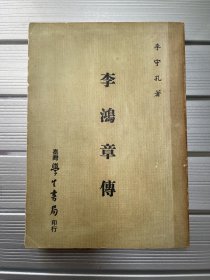 李守孔著
李鴻章傳
臺灣學生書局印行